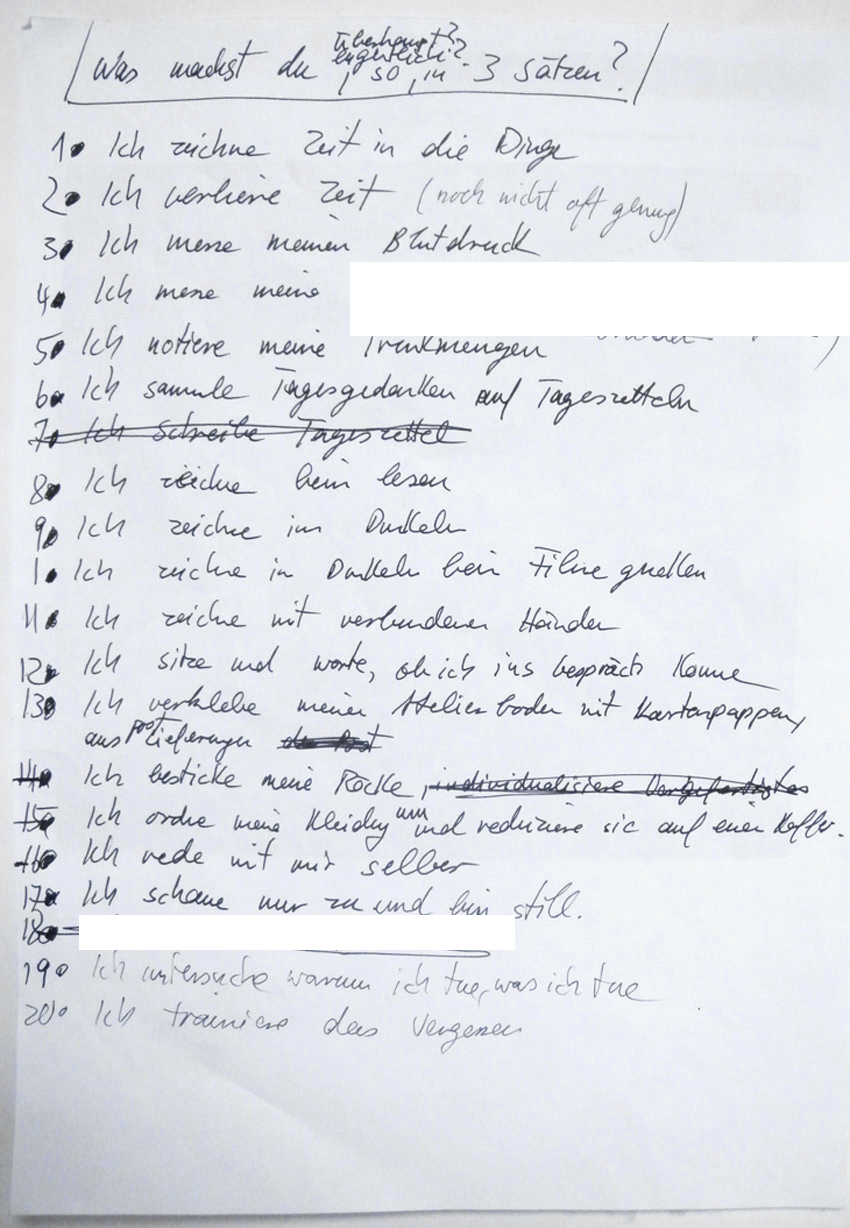 Überhaupt?
eigentlich?
Was machst du , so , in 3 Sätzen?
1. Ich zeichne Zeit in die Dinge
2. Ich verliere Zeit (noch nicht oft genug)
3. Ich messe meinen Blutdruck
4. Ich messe meine
5. Ich notiere meine Trinkmengen
6. Ich sammle Tagesgedanken auf Tageszetteln
7. Ich schreibe Tageszettel
8. Ich zeichne beim lesen
9. Ich zeichne im Dunkeln
1. Ich zeichne in Dunkeln beim Filme gucken
11. Ich zeichne mit verbundenen Händen
12. Ich sitze und warte, ob ich ins Gespräch komme
13. Ich verklebe meinen Atelierboden mit Kartonpappen,
aus Postlieferungen der Post
14. Ich besticke meine Röcke, individualisiere Vorgefertigtes
15. Ich ordne meine Kleidung um und reduziere sie auf einen Koffer.
16. Ich rede mit mir selber
17. Ich schaue nur zu und bin still.
18.
19. Ich untersuche warum ich tue, was ich tue
20. Ich trainiere das Vergessen